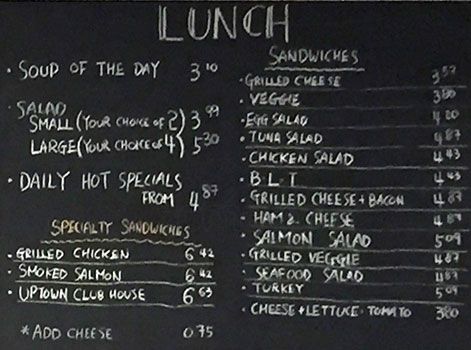 LUNCH
· SOUP OF THE DAY 3 10
· SALAD
SMALL (YOUR CHOICE OF 2) 3 99
LARGE (YOUR CHOICE OF 4) 5 30
· DAILY HOT SPECIALS
FROM 4 87
SPECIALTY SANDWICHES
· GRILLED CHICKEN 6 42
· SMOKED SALMON 6 42
· UPTOWN CLUB HOUSE 6 63
* ADD CHEESE 0.75
SANDWICHES
· GRILLED CHEESE 3 57
· VEGGIE 3 80
· EGG SALAD 4 20
· TUNA SALAD 4 87
· CHICKEN SALAD 4 43
· B·L·T 4 43
· GRILLED CHEESE + BACON 4 87
· HAM & CHEESE 4 87
· SALMON SALAD 5 09
· GRILLED VEGGIE 4 87
· SEAFOOD SALAD 4 87
· TURKEY 5 09
· CHEESE + LETTUCE · TOMATO 3 80